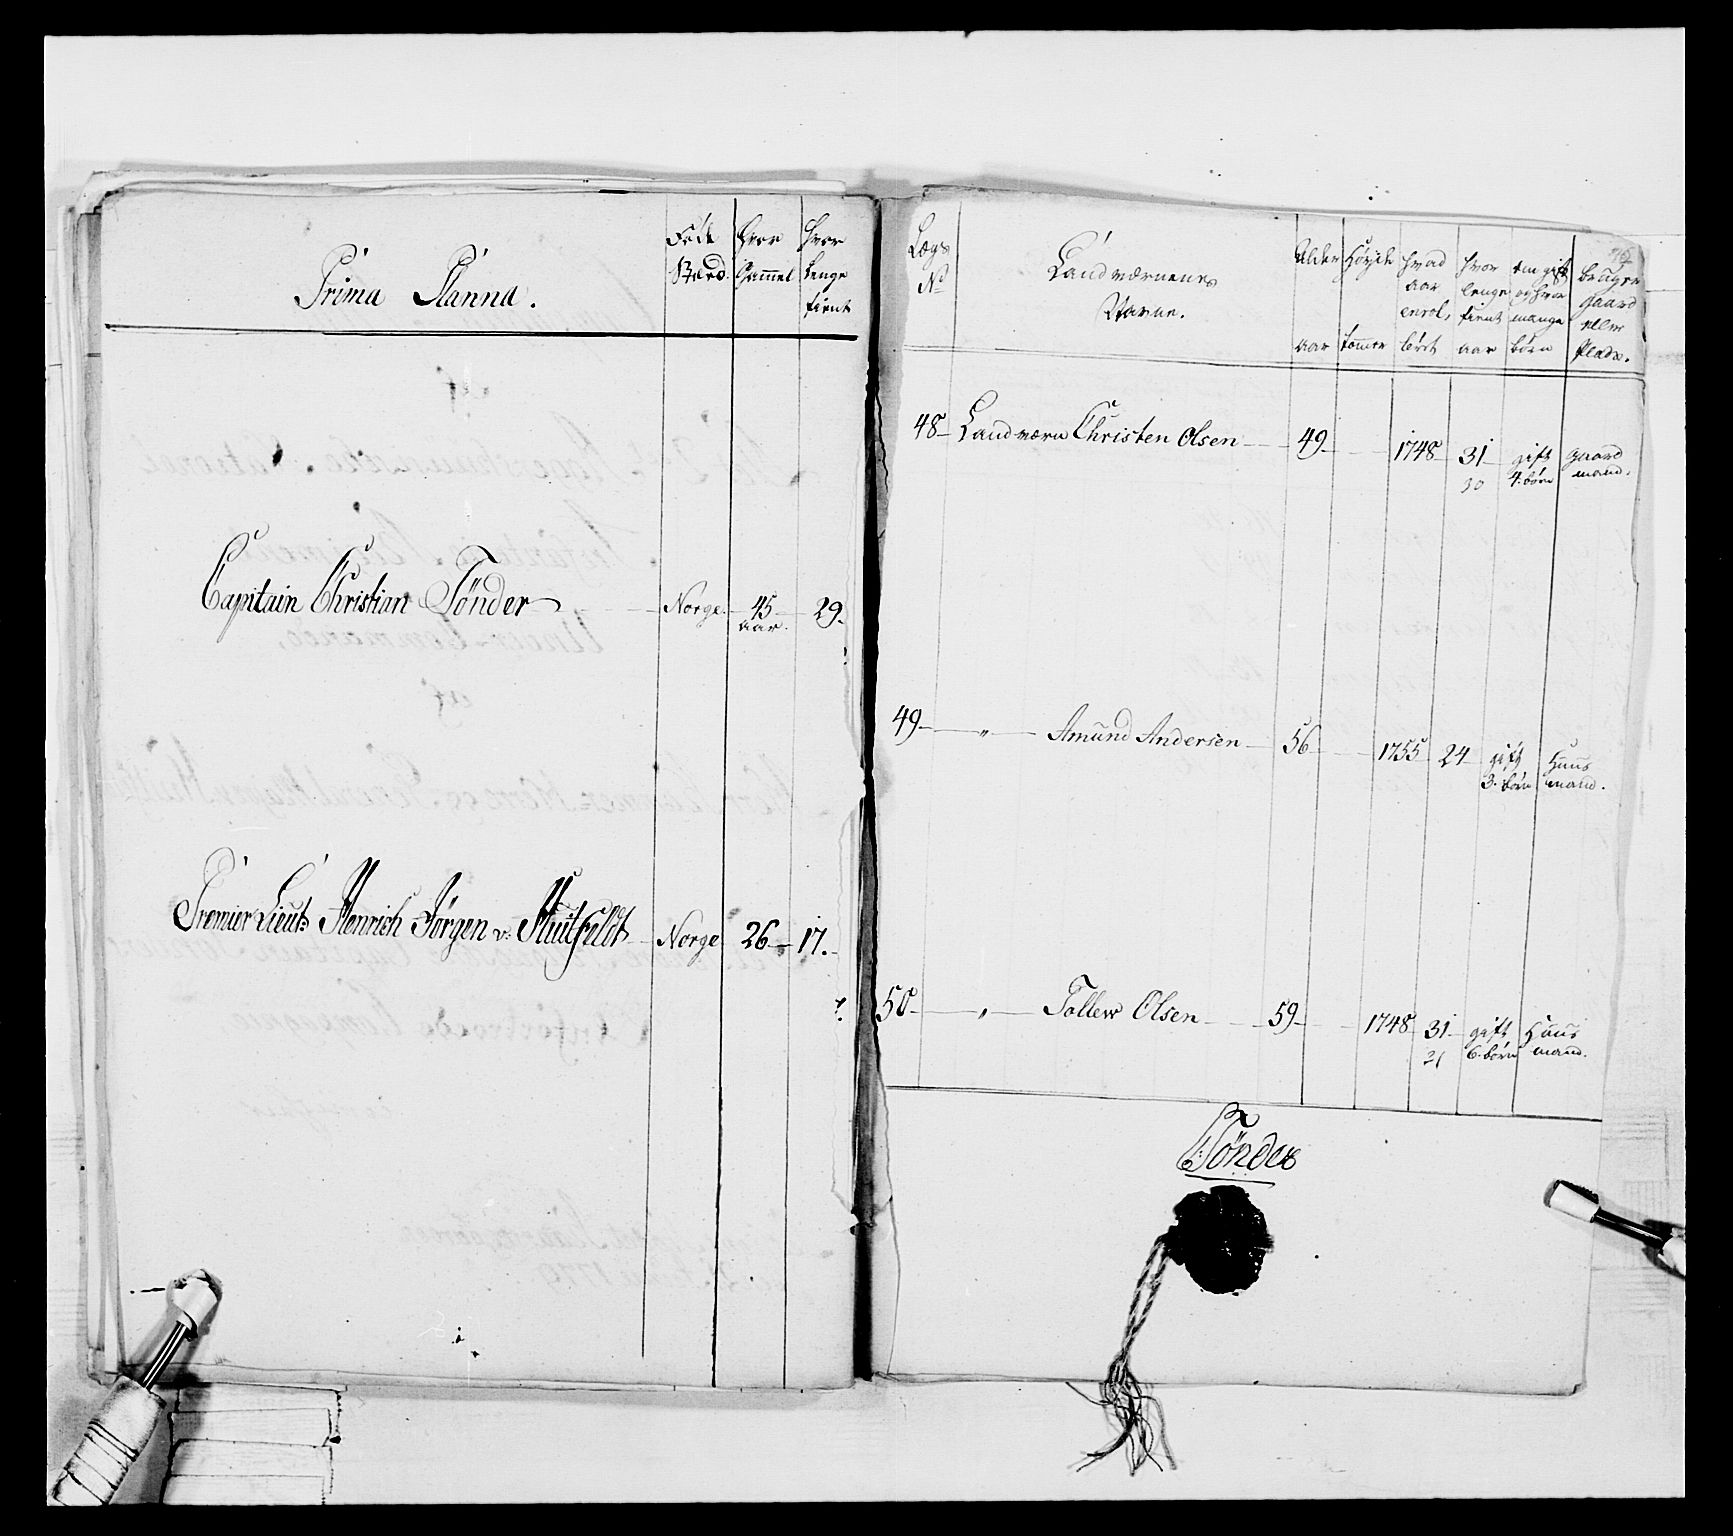 Prima Planna.
Föde Stæd.
Hvor Gammel
Hvor lenge tient
Capitain Christian Tönder Norge 45 aar. 29.
Premier Lieut: Henrich Jörgen v: Huitfeldt Norge 26 17.
Lægs No
Landværnenes Navne.
Alder aar
Höyde tommer
hvad aar enrol, lëret
hvor lenge tient aar
om gift og hvor mange börn
bruger gaard eller Plads.
48 Landværn Christen Olsen 49 1748 31 gift gaard
30 4. börn mand.
49 " Amund Andersen 56 1755 24 gift Huus
3. börn mand.
50 " Tollew Olsen 59 1748 31 gift Huus
31 6. börn mand.
Tönder